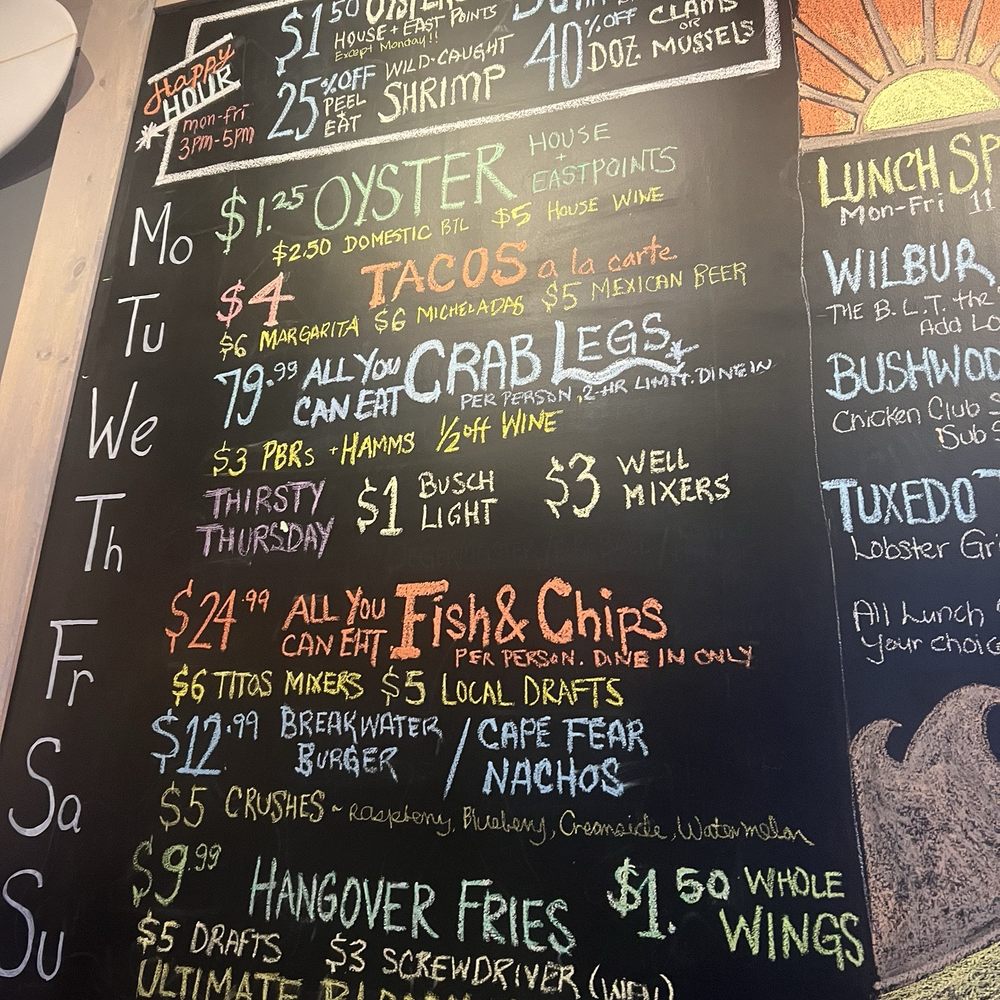 $1.50 OYSTERS
HOUSE + EAST POINTS
Except Monday!!
40%OFF CLAMS
or
DOZ. MUSSELS
Happy
HOUR
mon-fri
3PM-5PM
25%OFF WILD-CAUGHT
PEEL SHRIMP
EAT
Mo
$1.25 OYSTER HOUSE
+
EASTPOINTS
$2.50 DOMESTIC BTL $5 HOUSE WINE
Tu
$4 TACOS a la carte
$6 MARGARITA $6 MICHELADAS $5 MEXICAN BEER
We
79.99 ALL YOU CAN EAT CRAB LEGS
PER PERSON, 2-HR LIMIT. DINE IN
$3 PBRs + HAMMS 1/2 off WINE
Th
THIRSTY THURSDAY
$1 BUSCH LIGHT
$3 WELL MIXERS
Fr
$24.99 ALL YOU CAN EAT Fish & Chips
PER PERSON. DINE IN ONLY
$6 TITOS MIXERS $5 LOCAL DRAFTS
Sa
$12.99 BREAKWATER BURGER / CAPE FEAR NACHOS
$5 CRUSHES ~ Raspberry, Blueberry, Creamsicle, Watermelon
Su
$9.99 HANGOVER FRIES
$1.50 WHOLE WINGS
$5 DRAFTS $3 SCREWDRIVER (WELL)
ULTIMATE
LUNCH SP
Mon-Fri 11
WILBUR
THE B.L.T. the
Add Lo
BUSHWOO
Chicken Club S
Sub S
TUXEDO
Lobster Gri
All Lunch
your choic